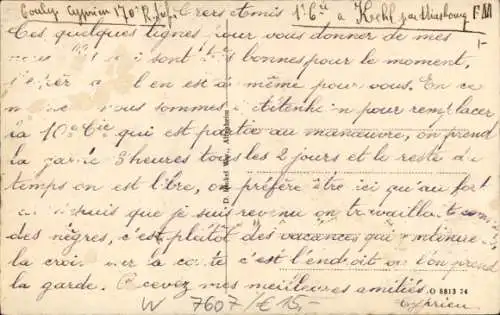 Couly Cyprien 170e R. Inf. 1e Cie à Kehl par Strasbourg F M
Chers Amis
Ces quelques lignes pour vous donner de mes
sont bonnes pour le moment,
j'espère il en est de même pour vous. En ce
vous sommes à pour remplacer
la 10e Cie qui est partie au manœuvre, on prend
la garde 3 heures tous les 2 jours et le reste du
temps on est libre, on préfère être ici qu'au fort
depuis que je suis revenu on travaillait comme
des nègres, c'est plutôt des vacances qui continue
la croix sur la carte c'est l'endroit ou l'on prend
la garde. Recevez mes meilleures amitiés.
Cyprien
D. Altenheim
O 8813 24
W 7607/€15,-